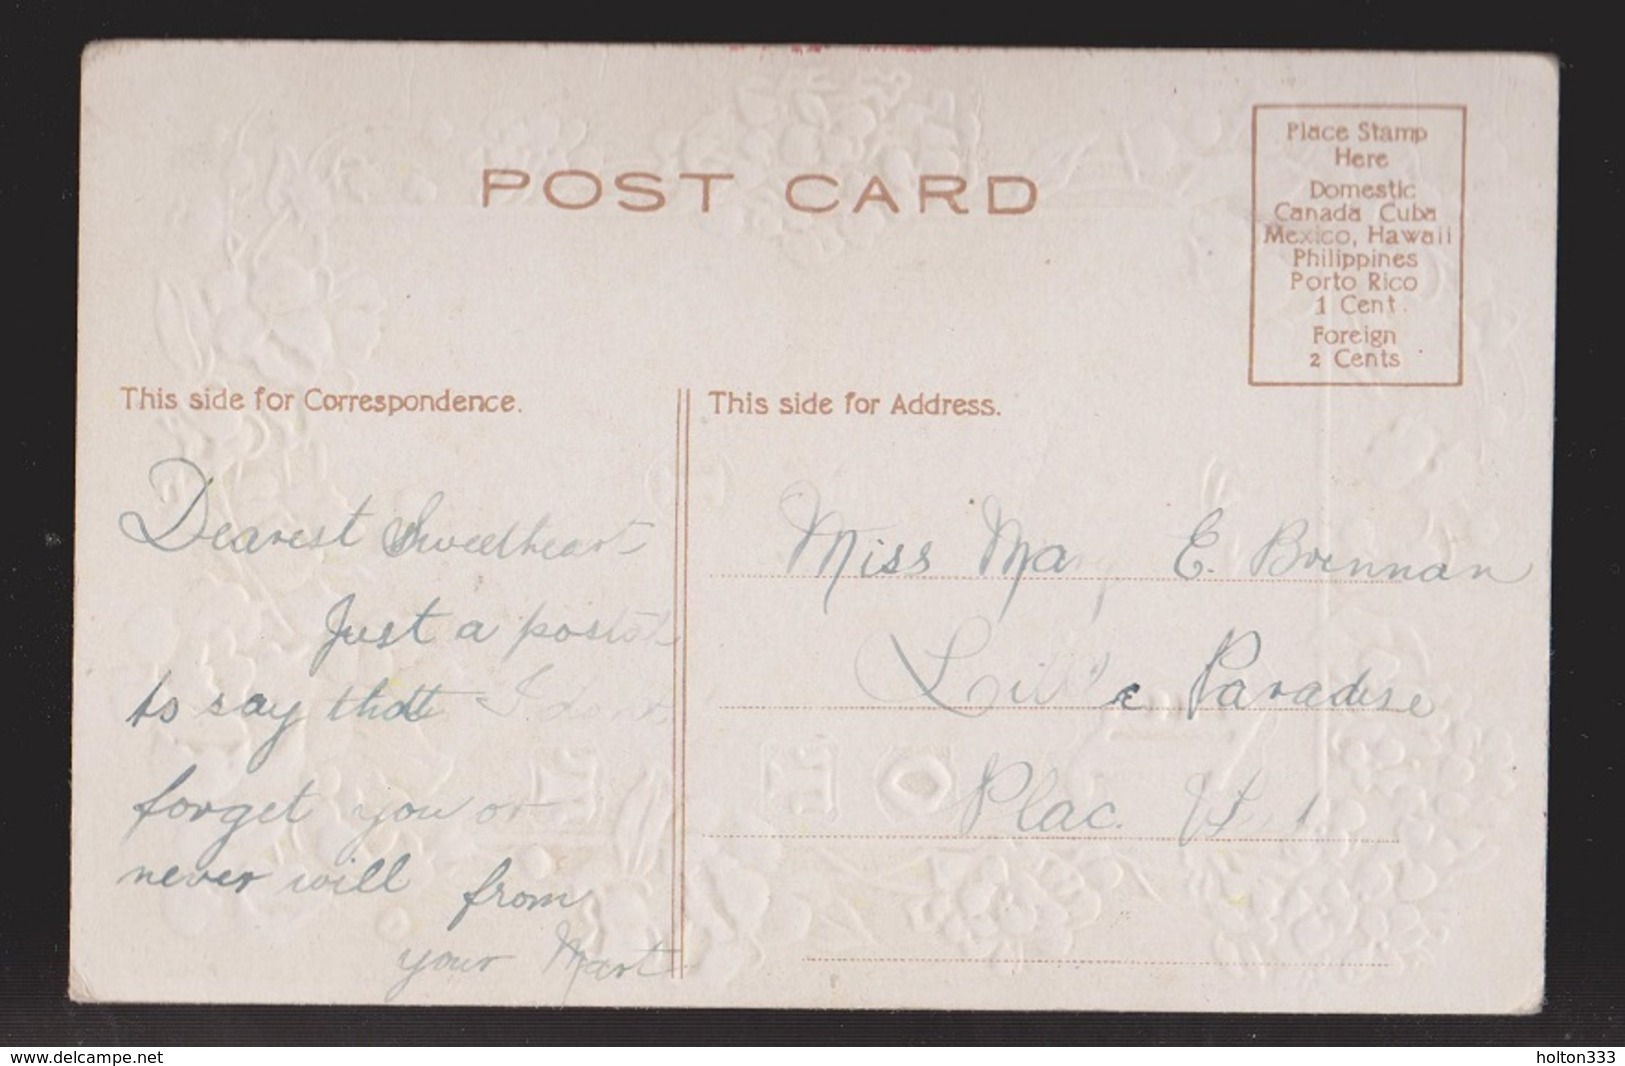 POST CARD
Place Stamp
Here
Domestic
Canada Cuba
Mexico, Hawaii
Philippines
Porto Rico
1 Cent.
Foreign
2 Cents
This side for Correspondence.
Dearest Sweetheart
Just a postal
to say that I dont
forget you or
never will from
your Mart
This side for Address.
Miss Mary E. Brennan
Little Paradise
Plac.
www.delcampe.net
holton333